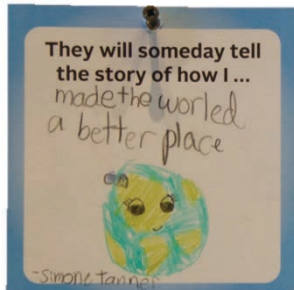 They will someday tell
the story of how I ...
made the worled
a better place
-Simone tanner